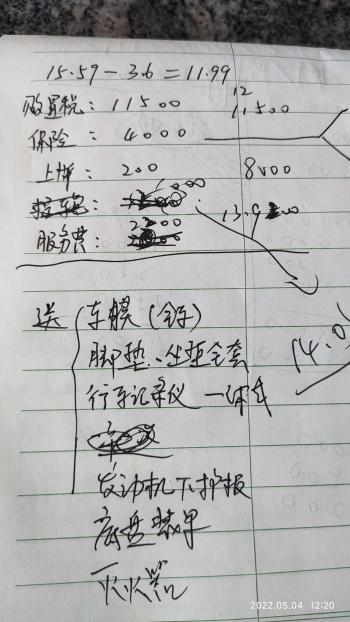 15.59 - 3.6 = 11.99
购置税: 11500
12
11.500
保险: 4000
上牌: 200
8000
000
13.9
服务费: 2200
送 车膜(全车)
脚垫、坐垫全套
14.0
行车记录仪
发动机下护板
底盘装甲
灭火器
2022.05.04 12:20